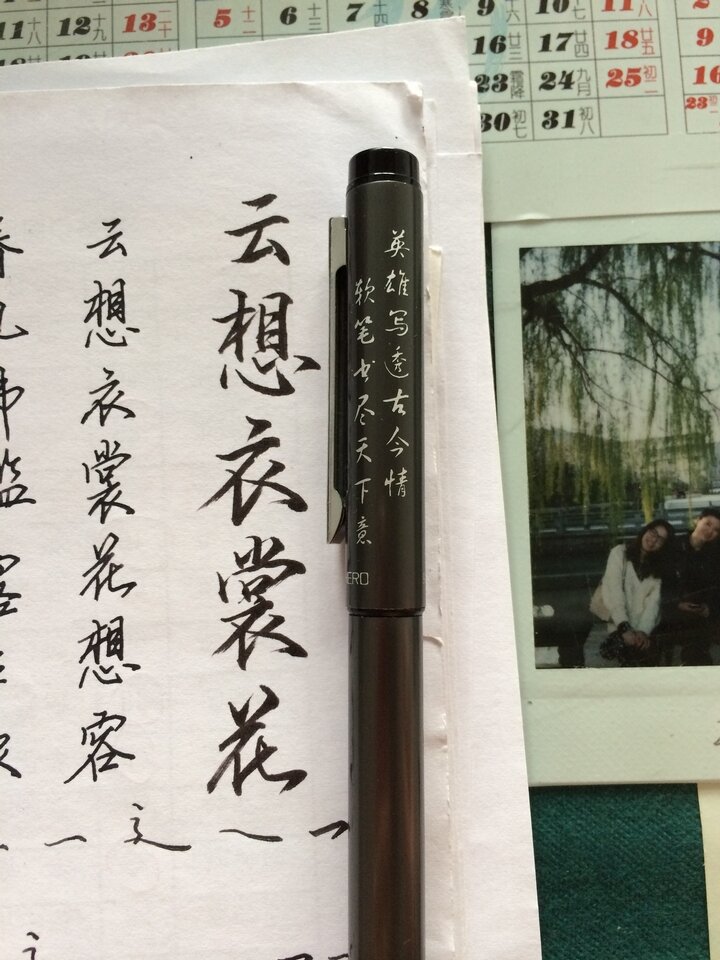 11 十八 12 十九 13 二十 5 十二 6 十三 7 十四 8 9 十六 10 十七 11 十八
16 廿三 17 廿四 18 廿五 9
23 霜降 24 九月 25 初二 16
30 初七 31 初八 23
英雄写透古今情
软笔书尽天下意
ERO
云想衣裳花
云想衣裳花想容
一文